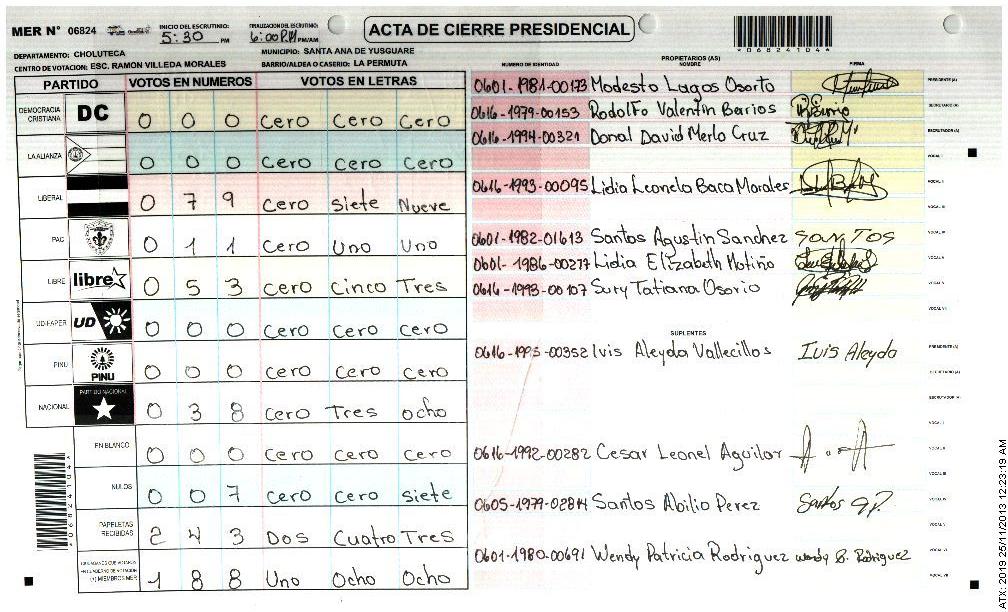 MER N° 06824
INICIO DEL ESCRUTINIO: 5:30 PM
FINALIZACION DEL ESCRUTINIO: 6:00 P.M PM/AM
ACTA DE CIERRE PRESIDENCIAL
*06824104*
DEPARTAMENTO: CHOLUTECA
MUNICIPIO: SANTA ANA DE YUSGUARE
CENTRO DE VOTACION: ESC. RAMON VILLEDA MORALES
BARRIO/ALDEA O CASERIO: LA PERMUTA
PARTIDO VOTOS EN NUMEROS VOTOS EN LETRAS
DEMOCRACIA CRISTIANA DC 0 0 0 Cero Cero Cero
LA ALIANZA 0 0 0 Cero Cero Cero
LIBERAL 0 7 9 Cero Siete Nueve
PAC 0 1 1 Cero Uno Uno
LIBRE libre 0 5 3 Cero Cinco Tres
UD-FAPER UD 0 0 0 Cero Cero Cero
PINU PINU 0 0 0 Cero Cero Cero
NACIONAL PARTIDO NACIONAL 0 3 8 Cero Tres Ocho
EN BLANCO 0 0 0 Cero Cero Cero
NULOS 0 0 7 Cero Cero Siete
PAPELETAS RECIBIDAS 2 4 3 Dos Cuatro Tres
CIUDADANOS QUE VOTARON EN CUADERNO DE VOTACION (+) MIEMBROS MER 1 8 8 Uno Ocho Ocho
*06824104*
PROPIETARIOS (AS)
NUMERO DE IDENTIDAD NOMBRE FIRMA
0601-1981-00173 Modesto Lagos Osorto PRESIDENTE (A)
0616-1979-00153 Rodolfo Valentin Berrios SECRETARIO (A)
0616-1994-00321 Donal David Merlo Cruz ESCRUTADOR (A)
VOCAL I
0616-1993-00095 Lidia Leonela Baca Morales VOCAL II
VOCAL III
0601-1982-01613 Santos Agustin Sanchez SANTOS VOCAL IV
0601-1986-00277 Lidia Elizabeth Motiño VOCAL V
0616-1993-00107 Sury Tatiana Osorio VOCAL VI
VOCAL VII
SUPLENTES
0616-1995-00352 Ivis Aleyda Vallecillos Ivis Aleyda PRESIDENTE (A)
SECRETARIO (A)
ESCRUTADOR (A)
VOCAL I
0616-1992-00282 Cesar Leonel Aguilar VOCAL II
VOCAL III
0605-1979-02814 Santos Abilio Perez Santos A P. VOCAL IV
VOCAL V
0601-1980-00691 Wendy Patricia Rodriguez Wendy P. Rodriguez VOCAL VI
VOCAL VII
ATX: 2019 25/11/2013 12:23:19 AM